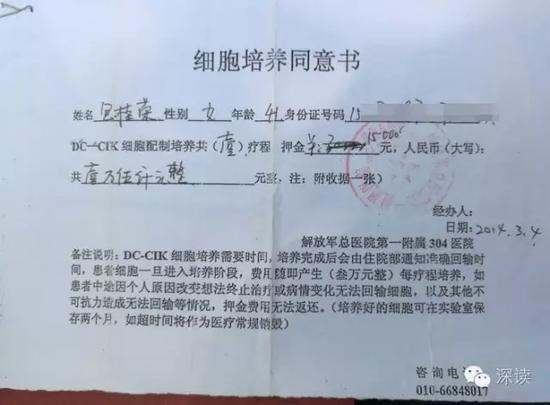 细胞培养同意书
姓名 包桂荣 性别 女 年龄 41 身份证号码 15
DC-CIK 细胞配制培养共（壹）疗程 押金 15000 元，人民币（大写）：
共 壹万伍仟元整 元整，注：附收据一张）
经办人：
日期：2014.3.4
解放军总医院第一附属 304 医院
备注说明：DC-CIK 细胞培养需要时间，培养完成后会由住院部通知准确回输时
间，患者细胞一旦进入培养阶段，费用随即产生（叁万元整）每疗程培养，如
患者中途因个人原因改变想法终止治疗或病情变化无法回输细胞，以及其他不
可抗力造成无法回输等情况，押金费用无法返还。（培养好的细胞可在实验室保
存两个月，如超时间将作为医疗常规销毁）
咨询电
010-66848017
深读